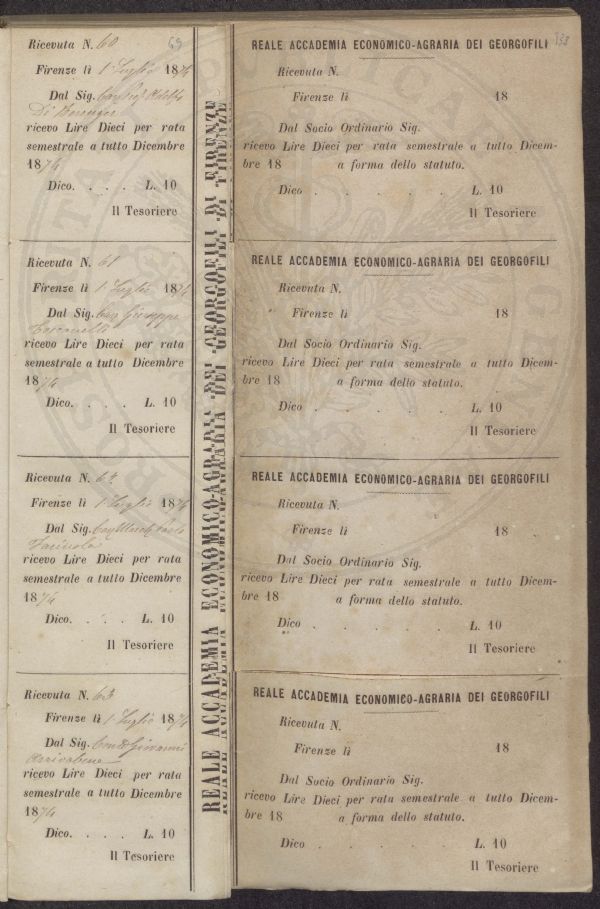 69
Ricevuta N. 60
Firenze lì 1 Luglio 1874
Dal Sig.
Di
ricevo Lire Dieci per rata
semestrale a tutto Dicembre
1874
Dico. . . . L. 10
Il Tesoriere
Ricevuta N. 61
Firenze lì 1 Luglio 1874
Dal Sig. Cav Giuseppe
ricevo Lire Dieci per rata
semestrale a tutto Dicembre
1874
Dico. . . . L. 10
Il Tesoriere
Ricevuta N. 62
Firenze lì 1 Luglio 1874
Dal Sig. Cav March Paolo
ricevo Lire Dieci per rata
semestrale a tutto Dicembre
1874
Dico. . . . L. 10
Il Tesoriere
Ricevuta N. 63
Firenze lì 1 Luglio 1874
Dal Sig. Conte Giovanni
Arrivabene
ricevo Lire Dieci per rata
semestrale a tutto Dicembre
1874
Dico. . . . L. 10
Il Tesoriere
REALE ACCADEMIA ECONOMICO-AGRARIA DEI GEORGOFILI DI FIRENZE
REALE ACCADEMIA ECONOMICO-AGRARIA DEI GEORGOFILI
Ricevuta N.
Firenze lì 18
Dal Socio Ordinario Sig.
ricevo Lire Dieci per rata semestrale a tutto Dicem-
bre 18 a forma dello statuto.
Dico . . . . L. 10
Il Tesoriere
REALE ACCADEMIA ECONOMICO-AGRARIA DEI GEORGOFILI
Ricevuta N.
Firenze lì 18
Dal Socio Ordinario Sig.
ricevo Lire Dieci per rata semestrale a tutto Dicem-
bre 18 a forma dello statuto.
Dico . . . . L. 10
Il Tesoriere
REALE ACCADEMIA ECONOMICO-AGRARIA DEI GEORGOFILI
Ricevuta N.
Firenze lì 18
Dal Socio Ordinario Sig.
ricevo Lire Dieci per rata semestrale a tutto Dicem-
bre 18 a forma dello statuto.
Dico . . . . L. 10
Il Tesoriere
REALE ACCADEMIA ECONOMICO-AGRARIA DEI GEORGOFILI
Ricevuta N.
Firenze lì 18
Dal Socio Ordinario Sig.
ricevo Lire Dieci per rata semestrale a tutto Dicem-
bre 18 a forma dello statuto.
Dico . . . . L. 10
Il Tesoriere